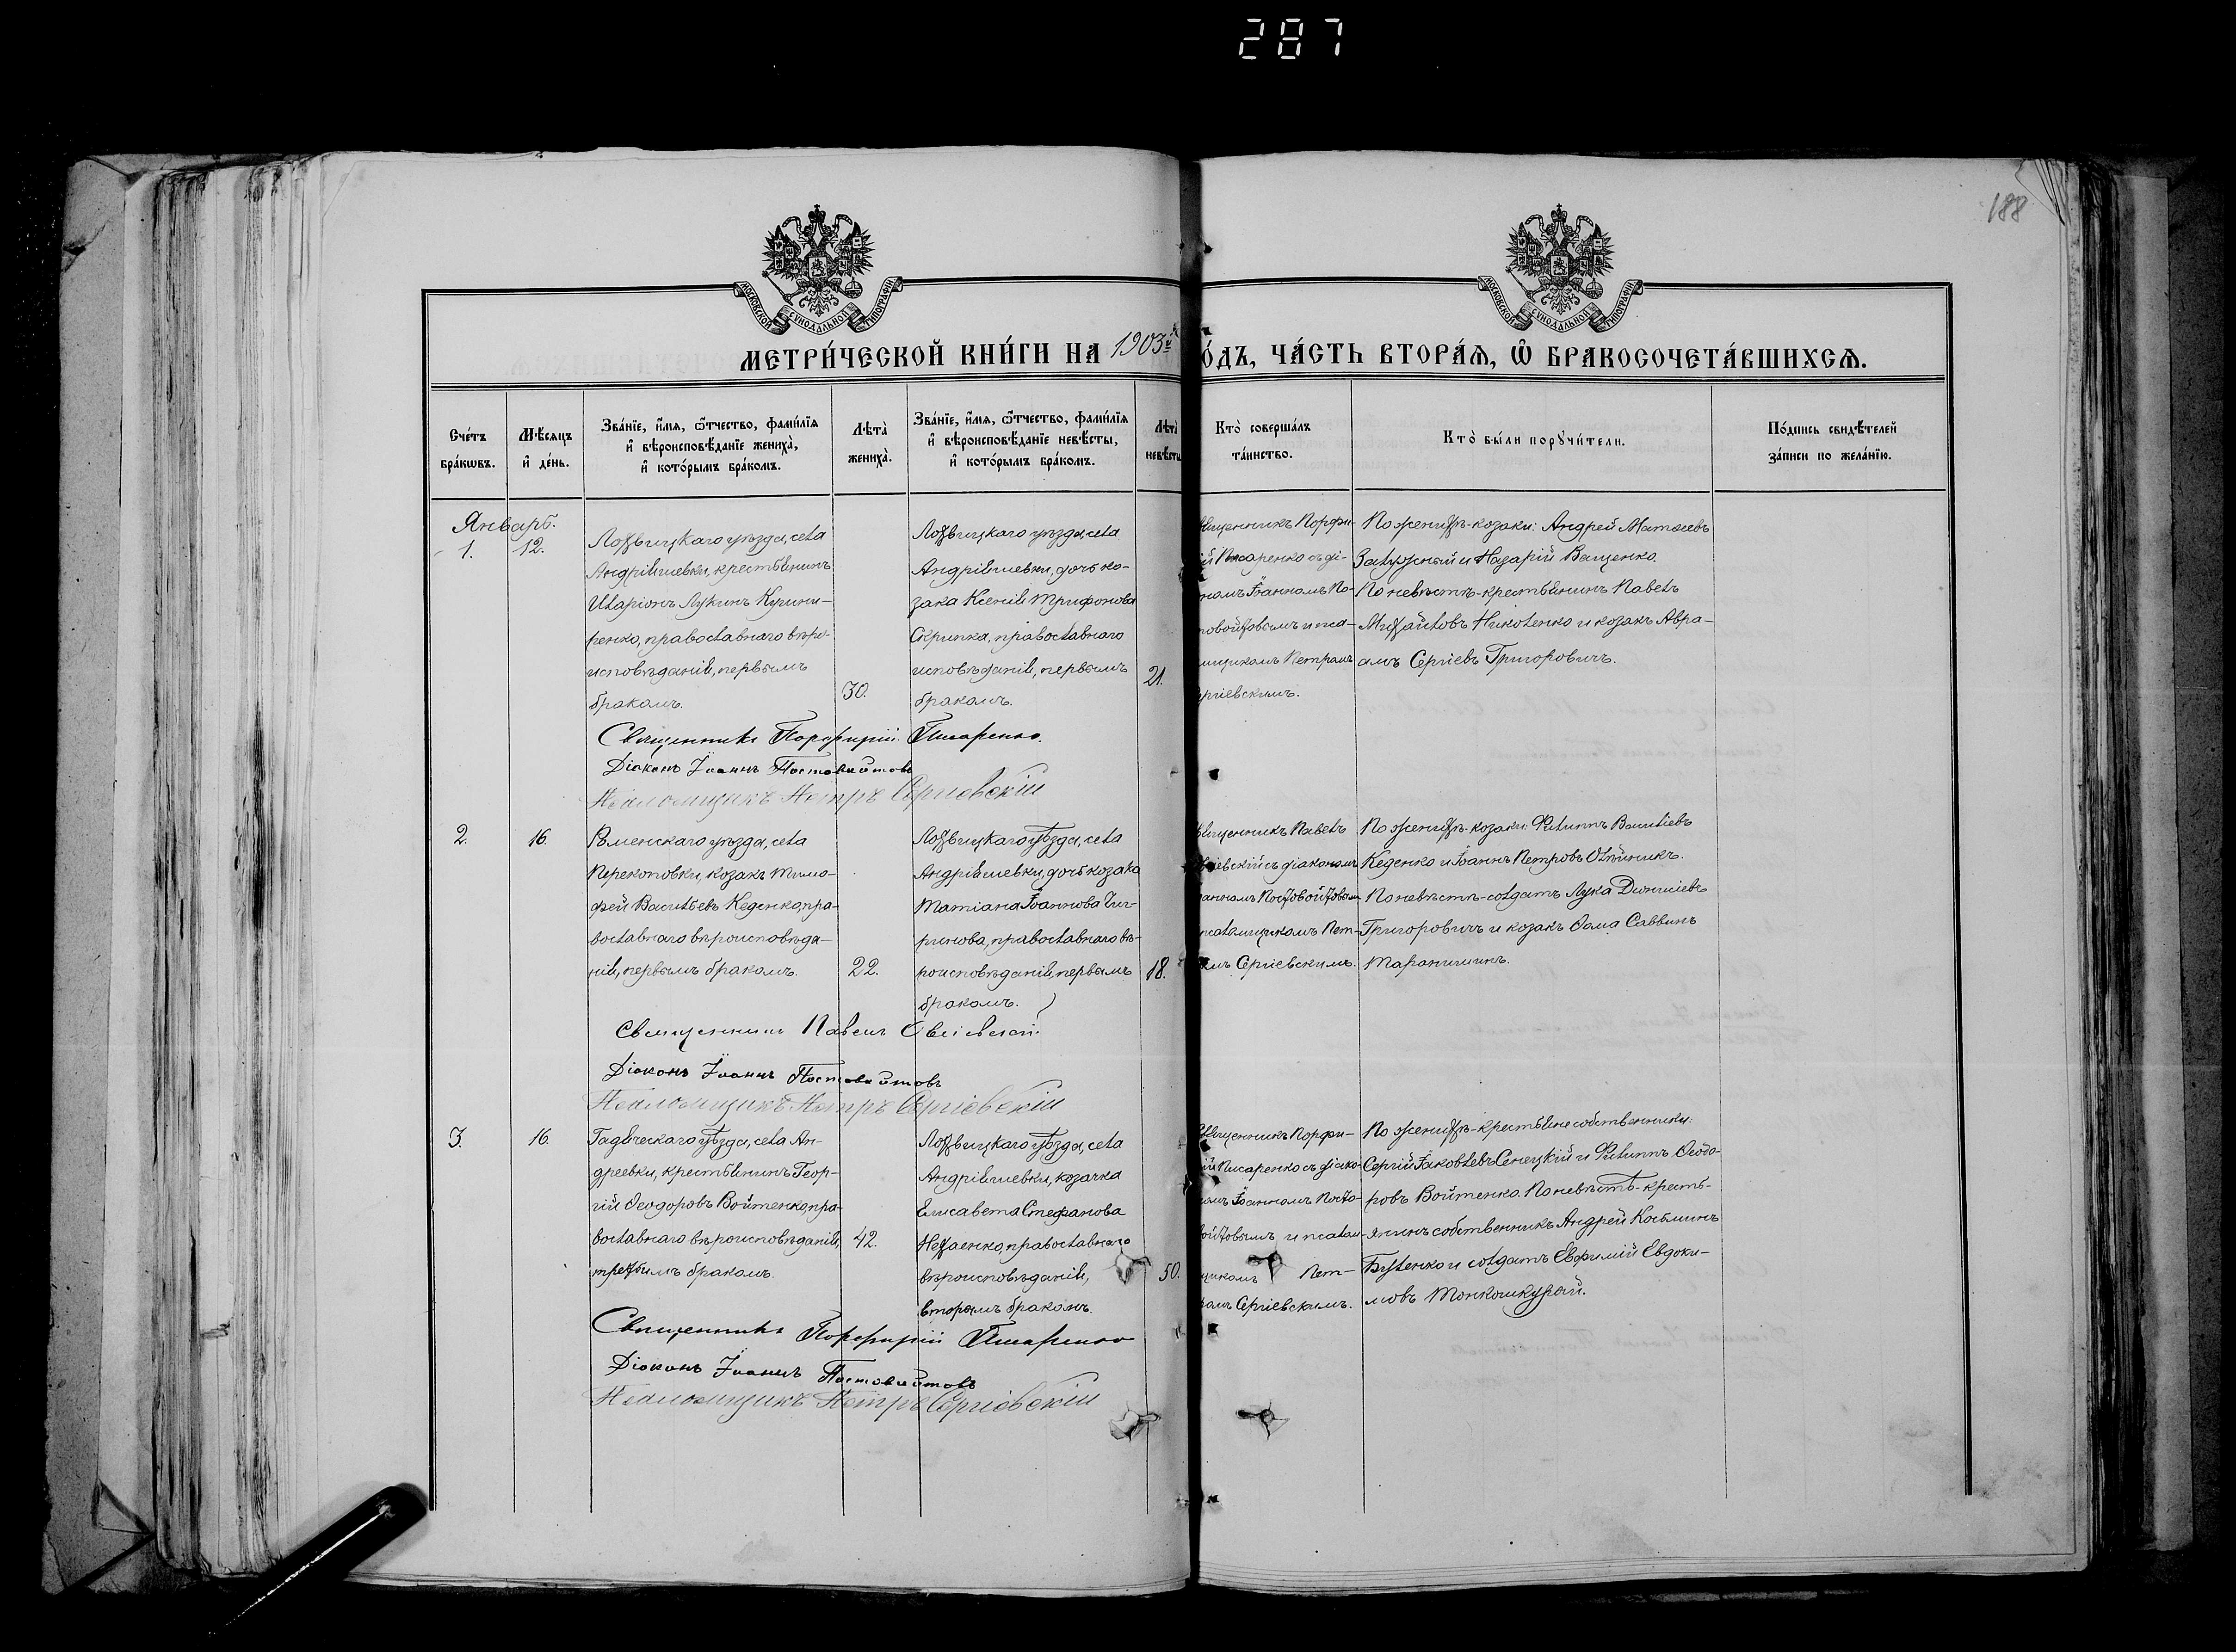 287
188
МОСКОВСКОЙ СѴНОДАЛЬНОЙ ТИПОГРАФІИ
МОСКОВСКОЙ СѴНОДАЛЬНОЙ ТИПОГРАФІИ
МЕТРИ́ЧЕСКОЙ КНИ́ГИ НА 1903й
О́ДЪ, ЧА́СТЬ ВТОРА́Ѧ, Ѽ БРАКОСОЧЕТА́ВШИХСѦ.
Сче́тъ бра́кѡвъ.
Мѣ́сяцъ и҆ де́нь.
Зва́нїе, и҆́мѧ, ѻ҆́тчество, фами́лїѧ
и҆ вѣроисповѣ́данїе жениха̀,
и҆ кото́рымъ бра́комъ.
Лѣта̀ жениха̀.
Зва́нїе, и҆́мѧ, ѻ҆́тчество, фами́лїѧ
и҆ вѣроисповѣ́данїе невѣ́сты,
и҆ кото́рымъ бра́комъ.
Лѣта̀ невѣ́сты
Кто̀ соверша́лъ
та́инство.
Кто̀ бы́ли порꙋчи́тели.
По́дпись свидѣ́телей
за́писи по жела́нїю.
Январь.
1. 12.
Лохвицкаго уѣзда, села
Андріяшевки, крестьянинъ
Иларіонъ Лукинъ Кушни-
ренко, православнаго вѣро-
исповѣданія, первымъ
бракомъ.
30.
Лохвицкаго уѣзда, села
Андріяшевки, дочь ко-
зака Ксенія Трифонова
Скрипка, православнаго
исповѣданія, первымъ
бракомъ.
21.
Священникъ Порфи-
ій Писаренко съ ді-
номъ Іоанномъ По-
товойтовымъ и пса-
мщикомъ Петромъ
ргіевскимъ.
По женихѣ-козаки: Андрей Матѳеевъ
Залужный и Назарій Ващенко.
По невѣстѣ-крестьянинъ Павелъ
Михайловъ Николенко и козакъ Авра-
амъ Сергіевъ Григоровичъ.
Священникъ Порфирій Писаренко.
Діаконъ Іоаннъ Постовойтовъ
Псаломщикъ Петръ Сергіевскій
2. 16.
Роменскаго уѣзда, села
Перекоповки, козакъ Тимо-
фей Васильевъ Кеденко, пра-
вославнаго вѣроисповѣда-
нія, первымъ бракомъ.
22.
Лохвицкаго уѣзда, села
Андріяшевки, дочь козака
Татіана Іоаннова Чич-
ринова, православнаго вѣ-
роисповѣданія, первымъ
бракомъ.
18.
Священникъ Павелъ
іевскій съ діакономъ
анномъ Постовойтовым
псаломщикомъ Пет-
омъ Сергіевскимъ.
По женихѣ-козаки: Филиппъ Василіевъ
Кеденко и Іоаннъ Петровъ Олѣйникъ.
По невѣстѣ-солдатъ Лука Діонисіевъ
Григоровичъ и козакъ Ѳома Саввинъ
Таранишинъ.
Священникъ Павелъ
Діаконъ Іоаннъ Постовойтовъ
Псаломщикъ Петръ Сергіевскій
3. 16.
Гадячскаго уѣзда, села Ан-
дреевки, крестьянинъ Геор-
гій Ѳеодоровъ Войтенко, пра-
вославнаго вѣроисповѣданія,
третьимъ бракомъ.
42.
Лохвицкаго уѣзда, села
Андріяшевки, козачка
Елисавета Стефанова
Нехаенко, православнаго
вѣроисповѣданія,
вторымъ бракомъ.
50.
Священникъ Порфи-
ій Писаренко съ діако-
омъ Іоанномъ Посто-
ойтовымъ и псалом-
щикомъ Пет-
ромъ Сергіевскимъ.
По женихѣ-крестьяне собственники:
Сергій Іаковлевъ Сенецкій и Филиппъ Ѳеодо-
ровъ Войтенко. По невѣстѣ-кресть-
янинъ собственникъ Андрей Косьминъ
Бутенко и солдатъ Евфимій Евдоки-
мовъ Тонкошкурый.
Священникъ Порфирій Писаренко
Діаконъ Іоаннъ Постовойтовъ
Псаломщикъ Петръ Сергіевскій